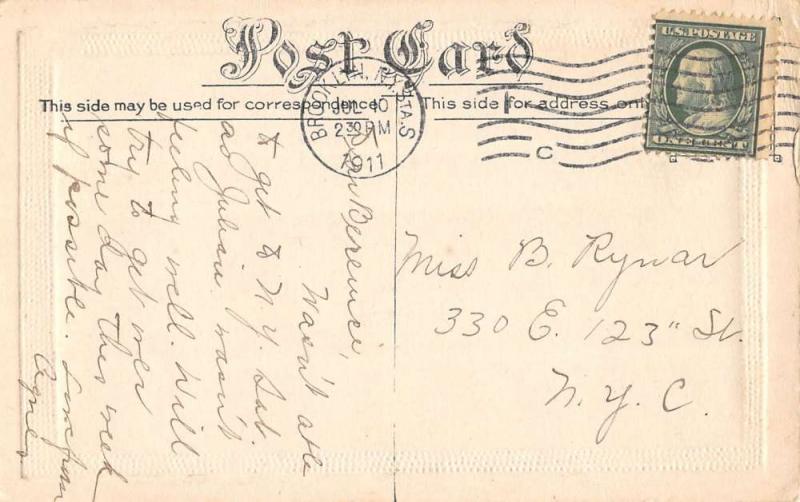 Post Card
This side may be used for correspondence
This side for address only
BROOKLYN, N.Y. STA. S
JUL 10
2 30 PM
1911
C
U.S. POSTAGE
ONE CENT
Bernice,
Wasn't able
to get to N.Y. Sat.
as Julian wasn't
feeling well. Will
try to get over
some day this week
if possible.
Agnes
Miss B. Rynar
330 E. 123" St.
N.Y.C.